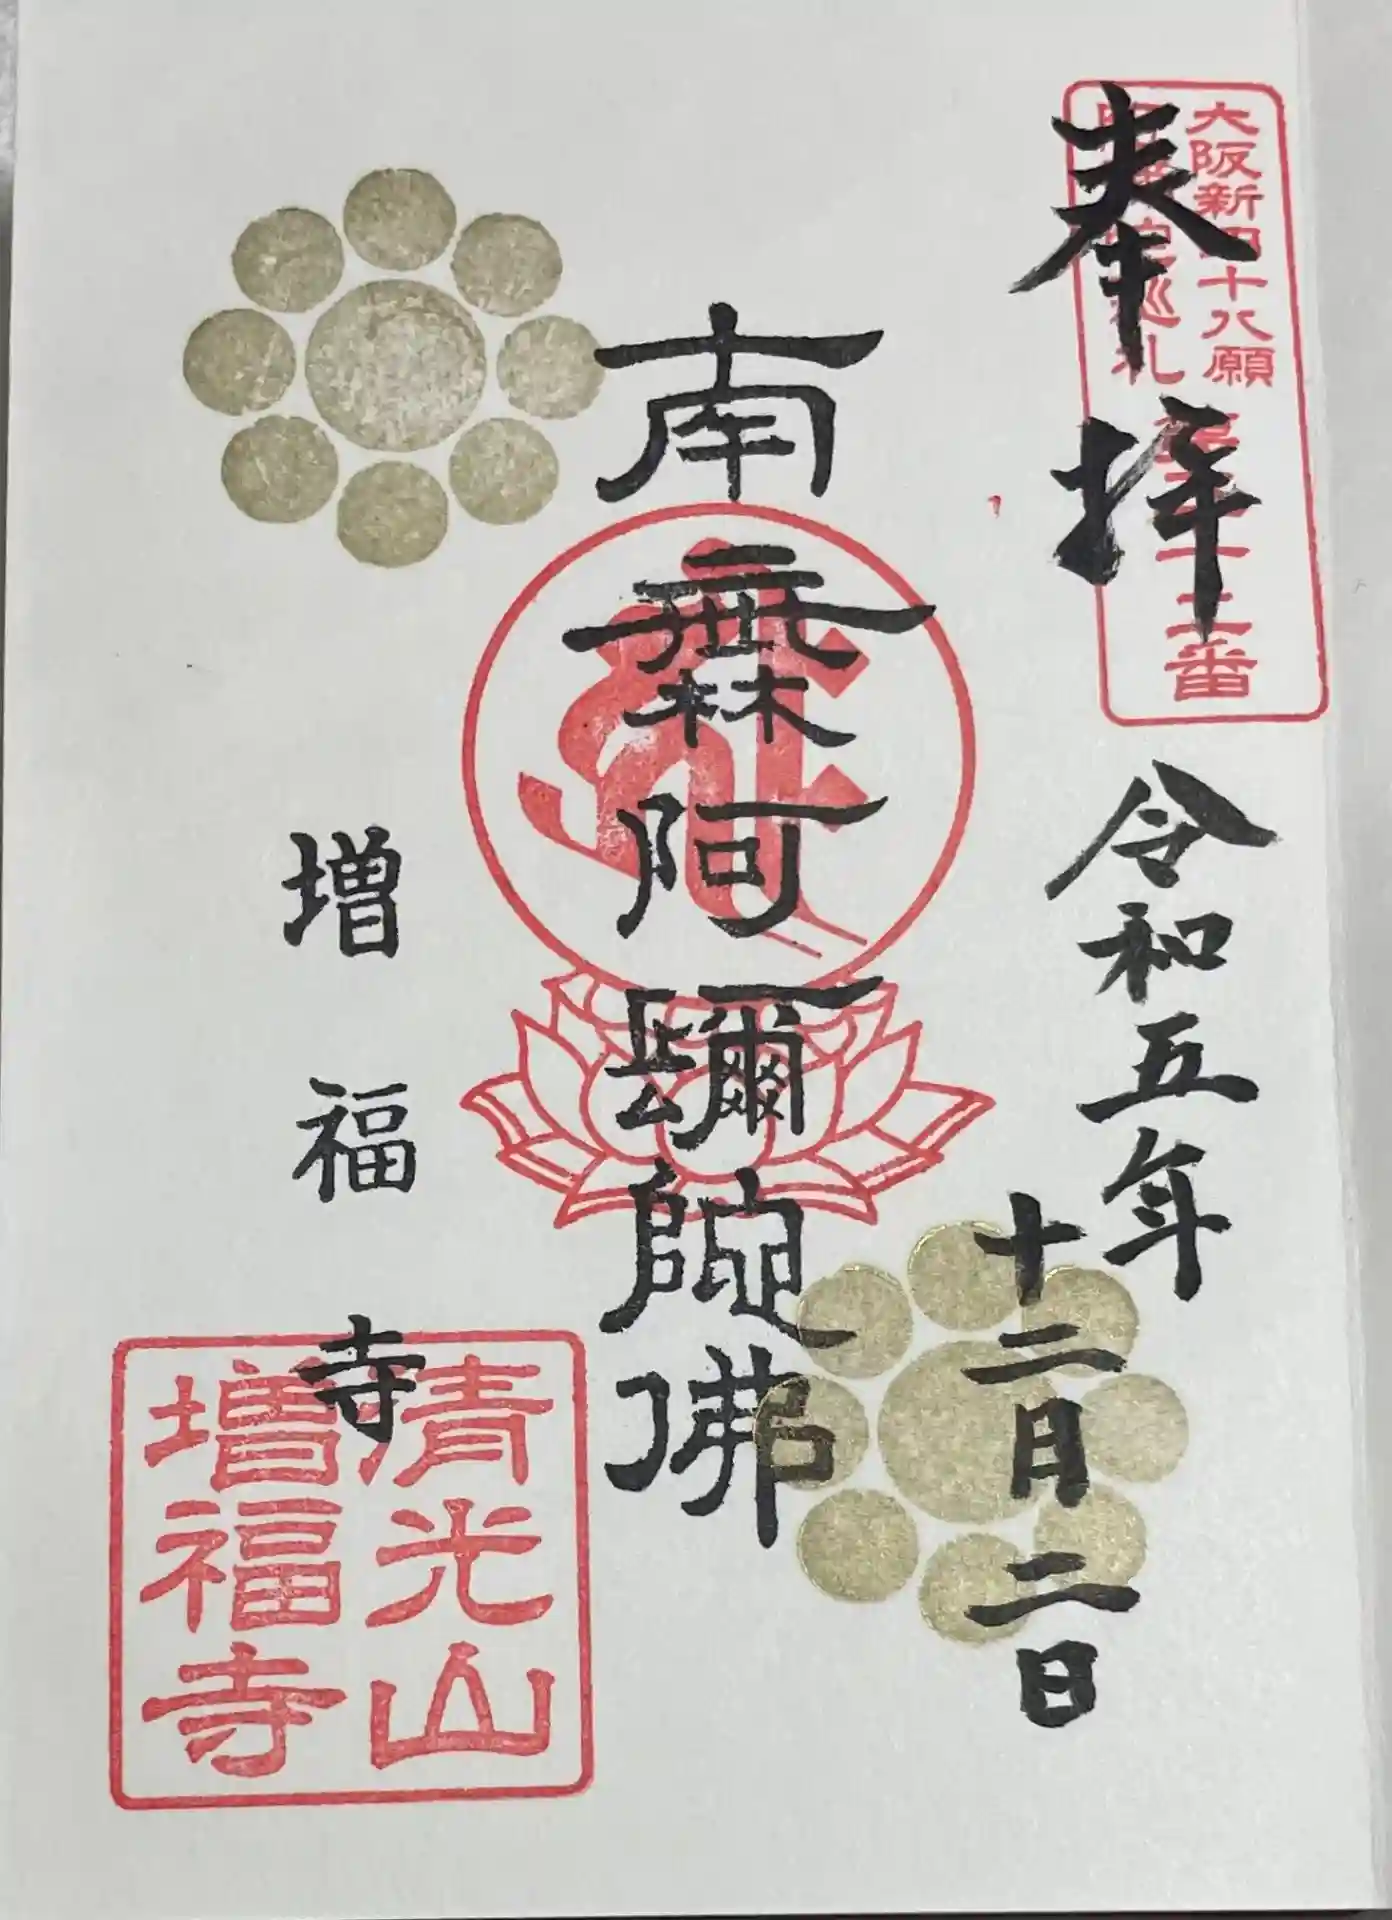 奉拝
大阪新四十八願
阿弥陀巡礼
第三十二番
令和五年
十二月二日
南無阿彌陀佛
増福寺
清光山
増福寺